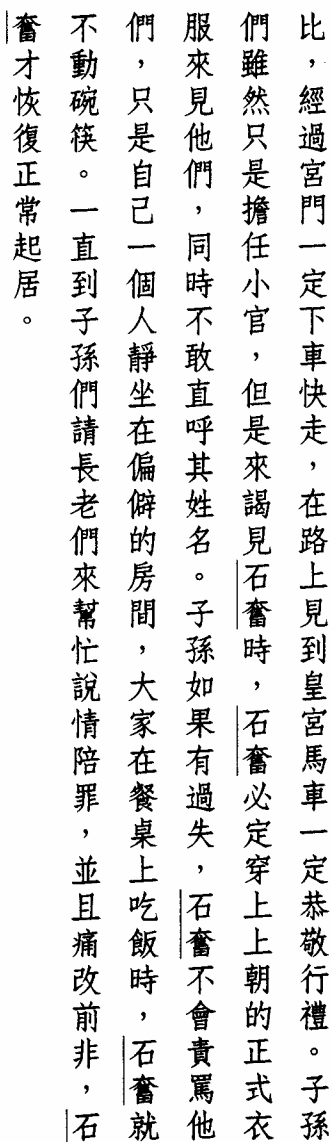 比，經過宮門一定下車快走，在路上見到皇宮馬車一定恭敬行禮。子孫
們雖然只是擔任小官，但是來謁見石奮時，石奮必定穿上上朝的正式衣
服來見他們，同時不敢直呼其姓名。子孫如果有過失，石奮不會責罵他
們，只是自己一個人靜坐在偏僻的房間，大家在餐桌上吃飯時，石奮就
不動碗筷。一直到子孫們請長老們來幫忙說情陪罪，並且痛改前非，石
奮才恢復正常起居。